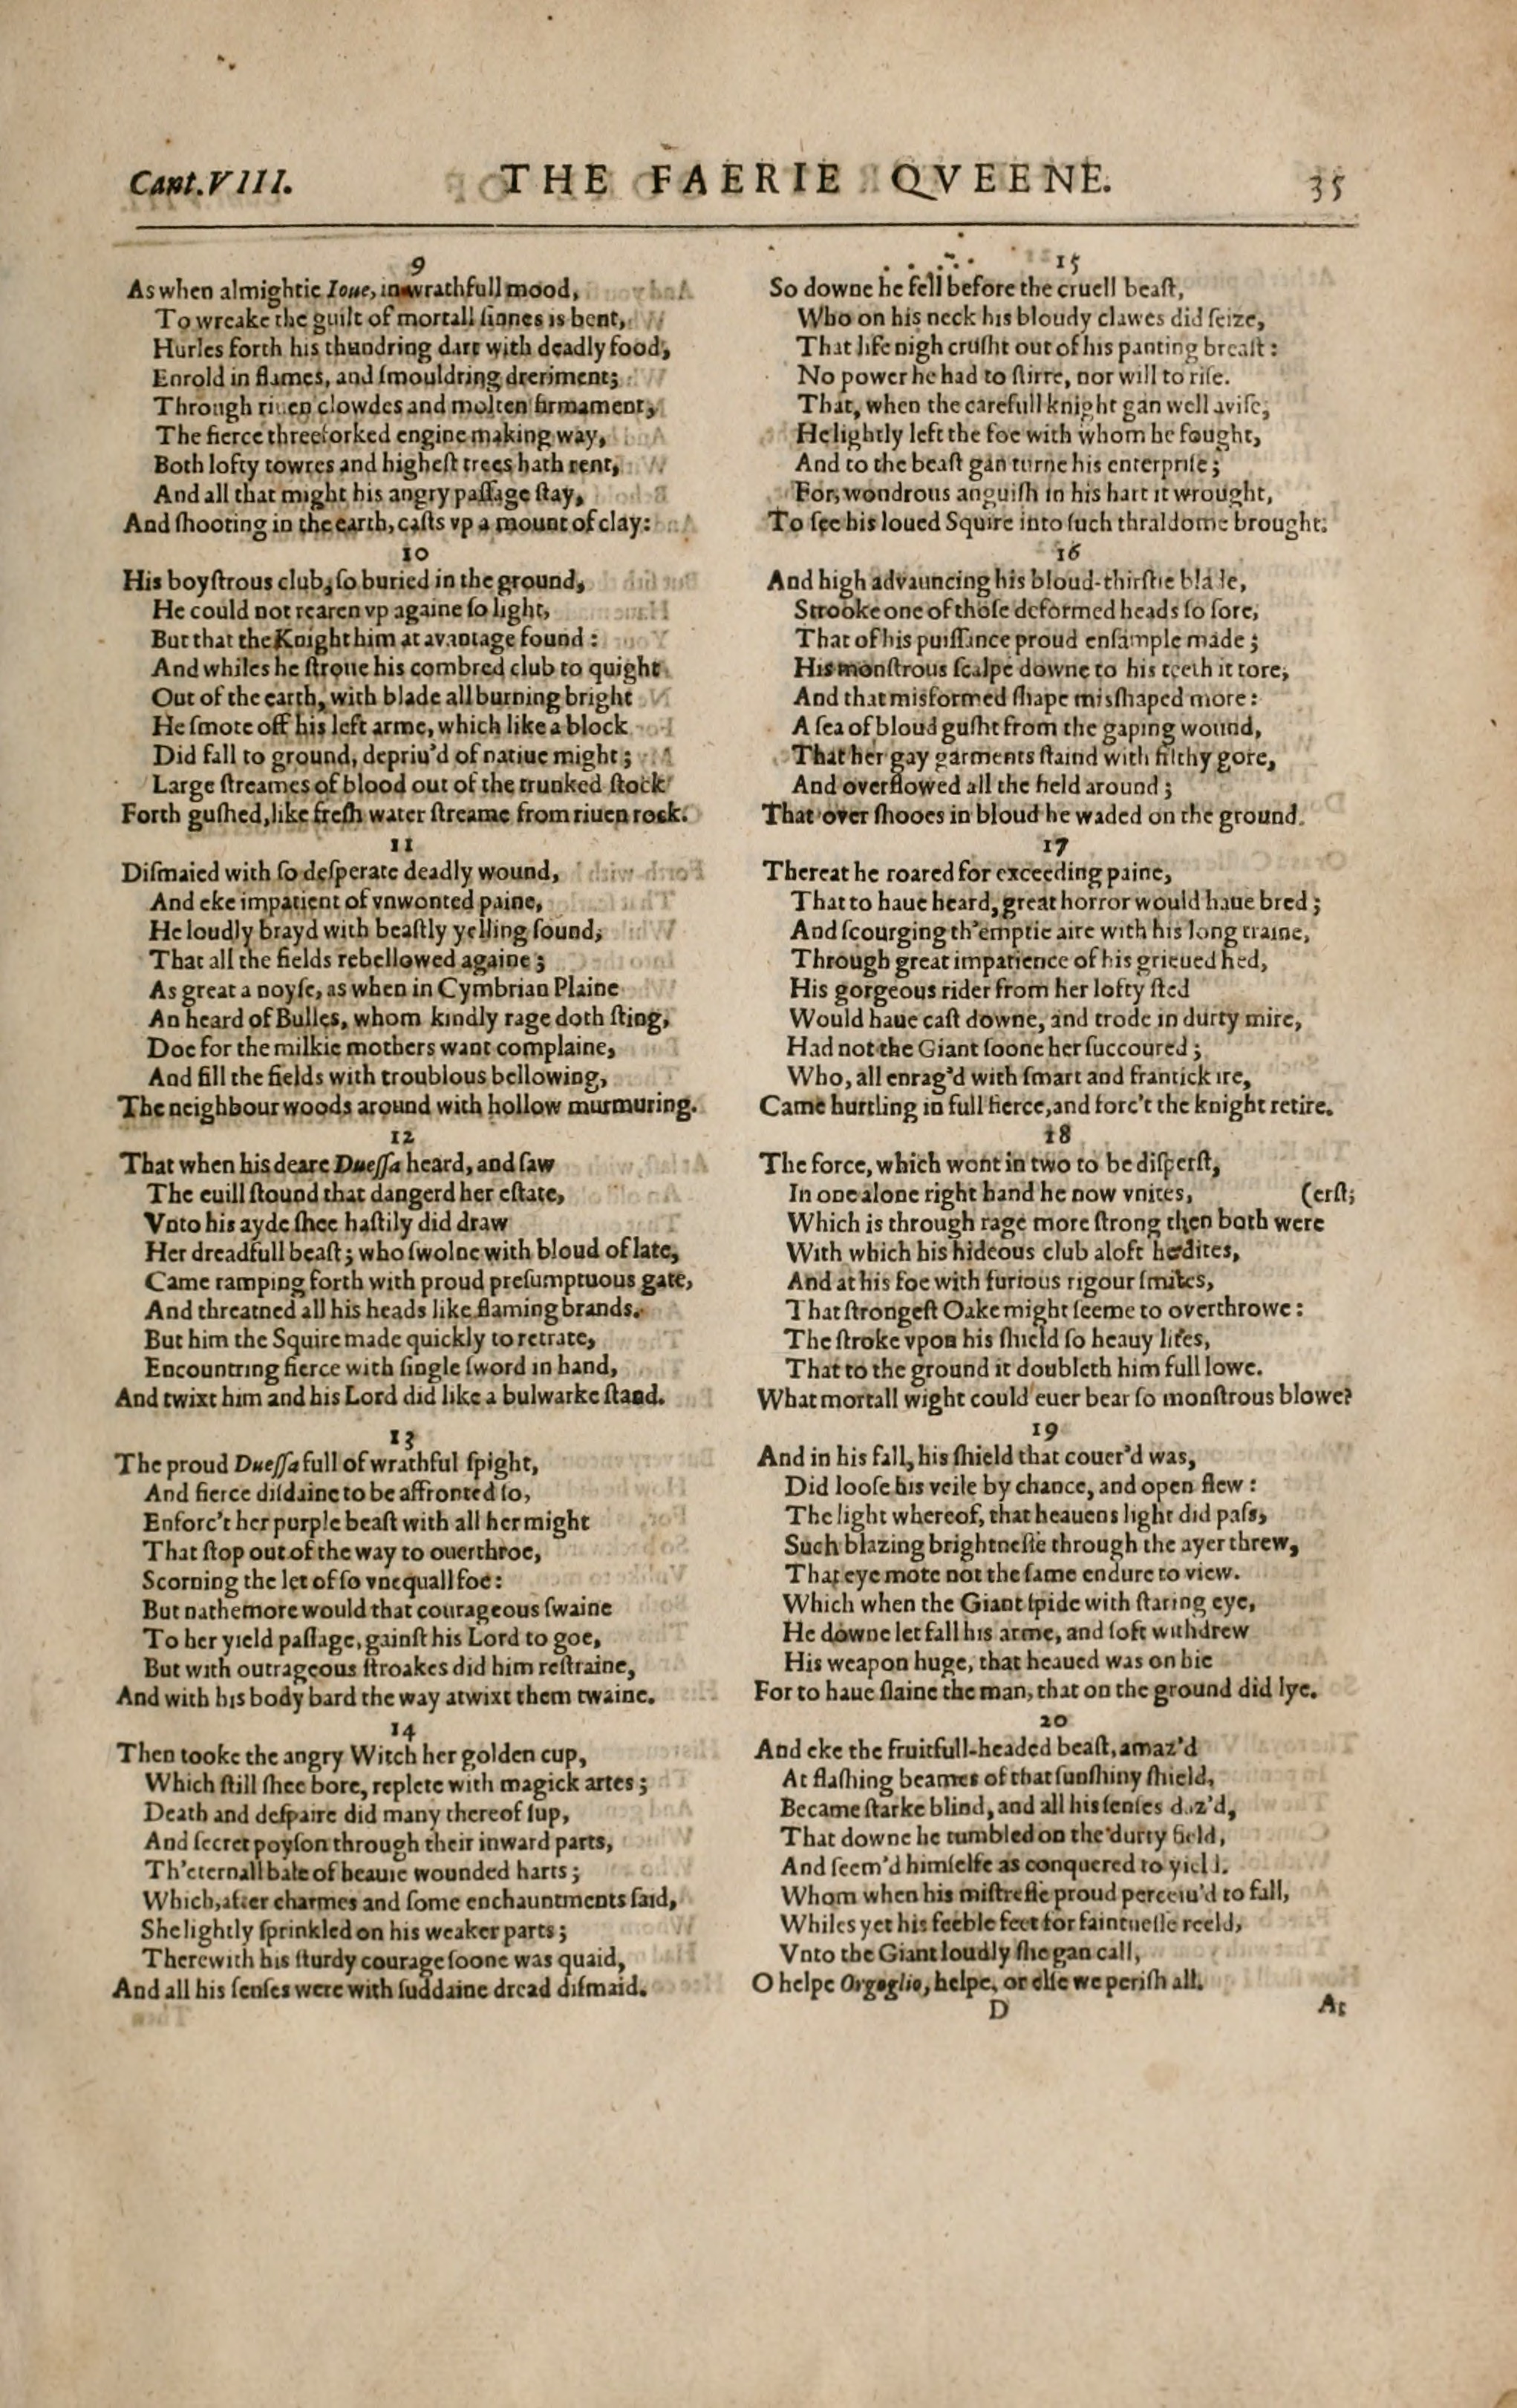 Cant. VIII. THE FAERIE QVEENE. 35
9
As when almightie Ioue, in wrathfull mood,
To wreake the guilt of mortall sinnes is bent,
Hurles forth his thundring dart with deadly food,
Enrold in flames, and ſmouldring dreriment;
Through riuen clowdes and molten firmament,
The fierce threeforked engine making way,
Both lofty towres and higheſt trees hath rent,
And all that might his angry paſſage ſtay,
And ſhooting in the earth, caſts vp a mount of clay:
10
His boyſtrous club, ſo buried in the ground,
He could not rearen vp againe ſo light,
But that the Knight him at avantage found:
And whiles he ſtroue his combred club to quight
Out of the earth, with blade all burning bright
He ſmote off his left arme, which like a block
Did fall to ground, depriu'd of natiue might;
Large ſtreames of blood out of the trunked ſtock
Forth guſhed, like freſh water ſtreame from riuen rock.
11
Diſmaied with ſo deſperate deadly wound,
And eke impatient of vnwonted paine,
He loudly brayd with beaſtly yelling ſound,
That all the fields rebellowed againe;
As great a noyſe, as when in Cymbrian Plaine
An heard of Bulles, whom kindly rage doth ſting,
Doe for the milkie mothers want complaine,
And fill the fields with troublous bellowing,
The neighbour woods around with hollow murmuring.
12
That when his deare Dueſſa heard, and ſaw
The euill ſtound that dangerd her eſtate,
Vnto his ayde ſhee haſtily did draw
Her dreadfull beaſt; who ſwolne with bloud of late,
Came ramping forth with proud preſumptuous gate,
And threatned all his heads like flaming brands.
But him the Squire made quickly to retrate,
Encountring fierce with ſingle ſword in hand,
And twixt him and his Lord did like a bulwarke ſtand.
13
The proud Dueſſa full of wrathful ſpight,
And fierce diſdaine to be affronted ſo,
Enforc't her purple beaſt with all her might
That ſtop out of the way to ouerthroe,
Scorning the let of ſo vnequall foe:
But nathemore would that courageous ſwaine
To her yield paſſage, gainſt his Lord to goe,
But with outrageous ſtroakes did him reſtraine,
And with his body bard the way atwixt them twaine.
14
Then tooke the angry Witch her golden cup,
Which ſtill ſhee bore, replete with magick artes;
Death and deſpaire did many thereof ſup,
And ſecret poyſon through their inward parts,
Th'eternall bale of heauie wounded harts;
Which, after charmes and ſome enchauntments ſaid,
She lightly ſprinkled on his weaker parts;
Therewith his ſturdy courage ſoone was quaid,
And all his ſenſes were with ſuddaine dread diſmaid.
15
So downe he fell before the cruell beaſt,
Who on his neck his bloudy clawes did ſeize,
That life nigh cruſht out of his panting breaſt:
No power he had to ſtirre, nor will to riſe.
That, when the carefull knight gan well aviſe,
He lightly left the foe with whom he fought,
And to the beaſt gan turne his enterpriſe;
For, wondrous anguiſh in his hart it wrought,
To ſee his loued Squire into ſuch thraldome brought.
16
And high advauncing his bloud-thirſtie blade,
Strooke one of thoſe deformed heads ſo ſore,
That of his puiſſance proud enſample made;
His monſtrous ſcalpe downe to his teeth it tore,
And that misformed ſhape misſhaped more:
A ſea of bloud guſht from the gaping wound,
That her gay garments ſtaind with filthy gore,
And overflowed all the field around;
That over ſhooes in bloud he waded on the ground.
17
Thereat he roared for exceeding paine,
That to haue heard, great horror would haue bred;
And ſcourging th'emptie aire with his long traine,
Through great impatience of his grieued hed,
His gorgeous rider from her lofty ſted
Would haue caſt downe, and trode in durty mire,
Had not the Giant ſoone her ſuccoured;
Who, all enrag'd with ſmart and frantick ire,
Came hurtling in full fierce, and forc't the knight retire.
18
The force, which wont in two to be diſperſt,
In one alone right hand he now vnites, (erſt;
Which is through rage more ſtrong then both were
With which his hideous club aloft he dites,
And at his foe with furious rigour ſmites,
That ſtrongeſt Oake might ſeeme to overthrowe:
The ſtroke vpon his ſhield ſo heauy lites,
That to the ground it doubleth him full lowe.
What mortall wight could euer bear ſo monſtrous blowe?
19
And in his fall, his ſhield that couer'd was,
Did looſe his veile by chance, and open flew:
The light whereof, that heauens light did paſs,
Such blazing brightneſſe through the ayer threw,
That eye mote not the ſame endure to view.
Which when the Giant ſpide with ſtaring eye,
He downe let fall his arme, and ſoft withdrew
His weapon huge, that heaued was on hie
For to haue ſlaine the man, that on the ground did lye.
20
And eke the fruitfull-headed beaſt, amaz'd
At flaſhing beames of that ſunſhiny ſhield,
Became ſtarke blind, and all his ſenſes daz'd,
That downe he tumbled on the durty field,
And ſeem'd himſelfe as conquered to yield.
Whom when his miſtreſſe proud perceiu'd to fall,
Whiles yet his feeble feet for faintneſſe reeld,
Vnto the Giant loudly ſhe gan call,
O helpe Orgoglio, helpe, or elſe we periſh all.
D At